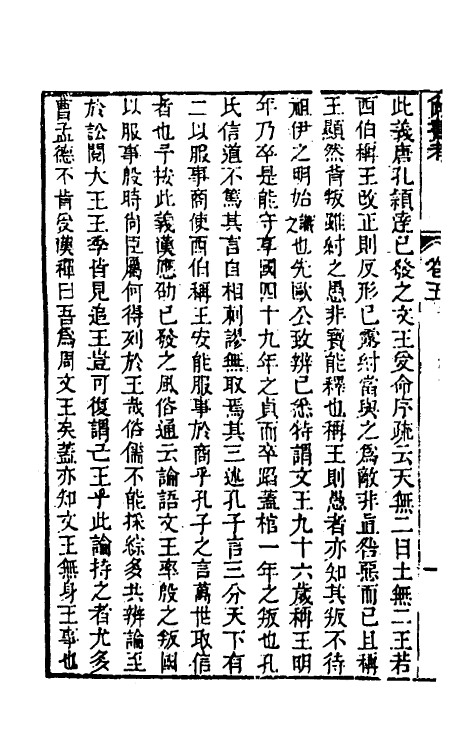 此義唐孔穎達已發之文王受命序疏云天無二日土無二王若
西伯稱王改正則反形已露紂當與之爲敵非直咎惡而已且稱
王顯然背叛雖紂之愚非寶能釋也稱王則愚者亦知其叛不待
祖伊之明始識之也先歐公致辨已悉特謂文王九十六歲稱王明
年乃卒是能守享國四十九年之貞而卒蹈蓋棺一年之叛也孔
氏信道不篤其言自相刺謬無取焉其三述孔子言三分天下有
二以服事商使西伯稱王安能服事於商乎孔子之言萬世取信
者也予按此義漢應劭已發之風俗通云論語文王率殷之叛國
以服事殷時尙臣屬何得列於王哉俗儒不能採綜多共辨論至
於訟閱大王王季皆見追王豈可復謂己王乎此論持之者尤多
曹孟德不肯受漢禪曰吾爲周文王矣蓋亦知文王無身王事也
卷五
一